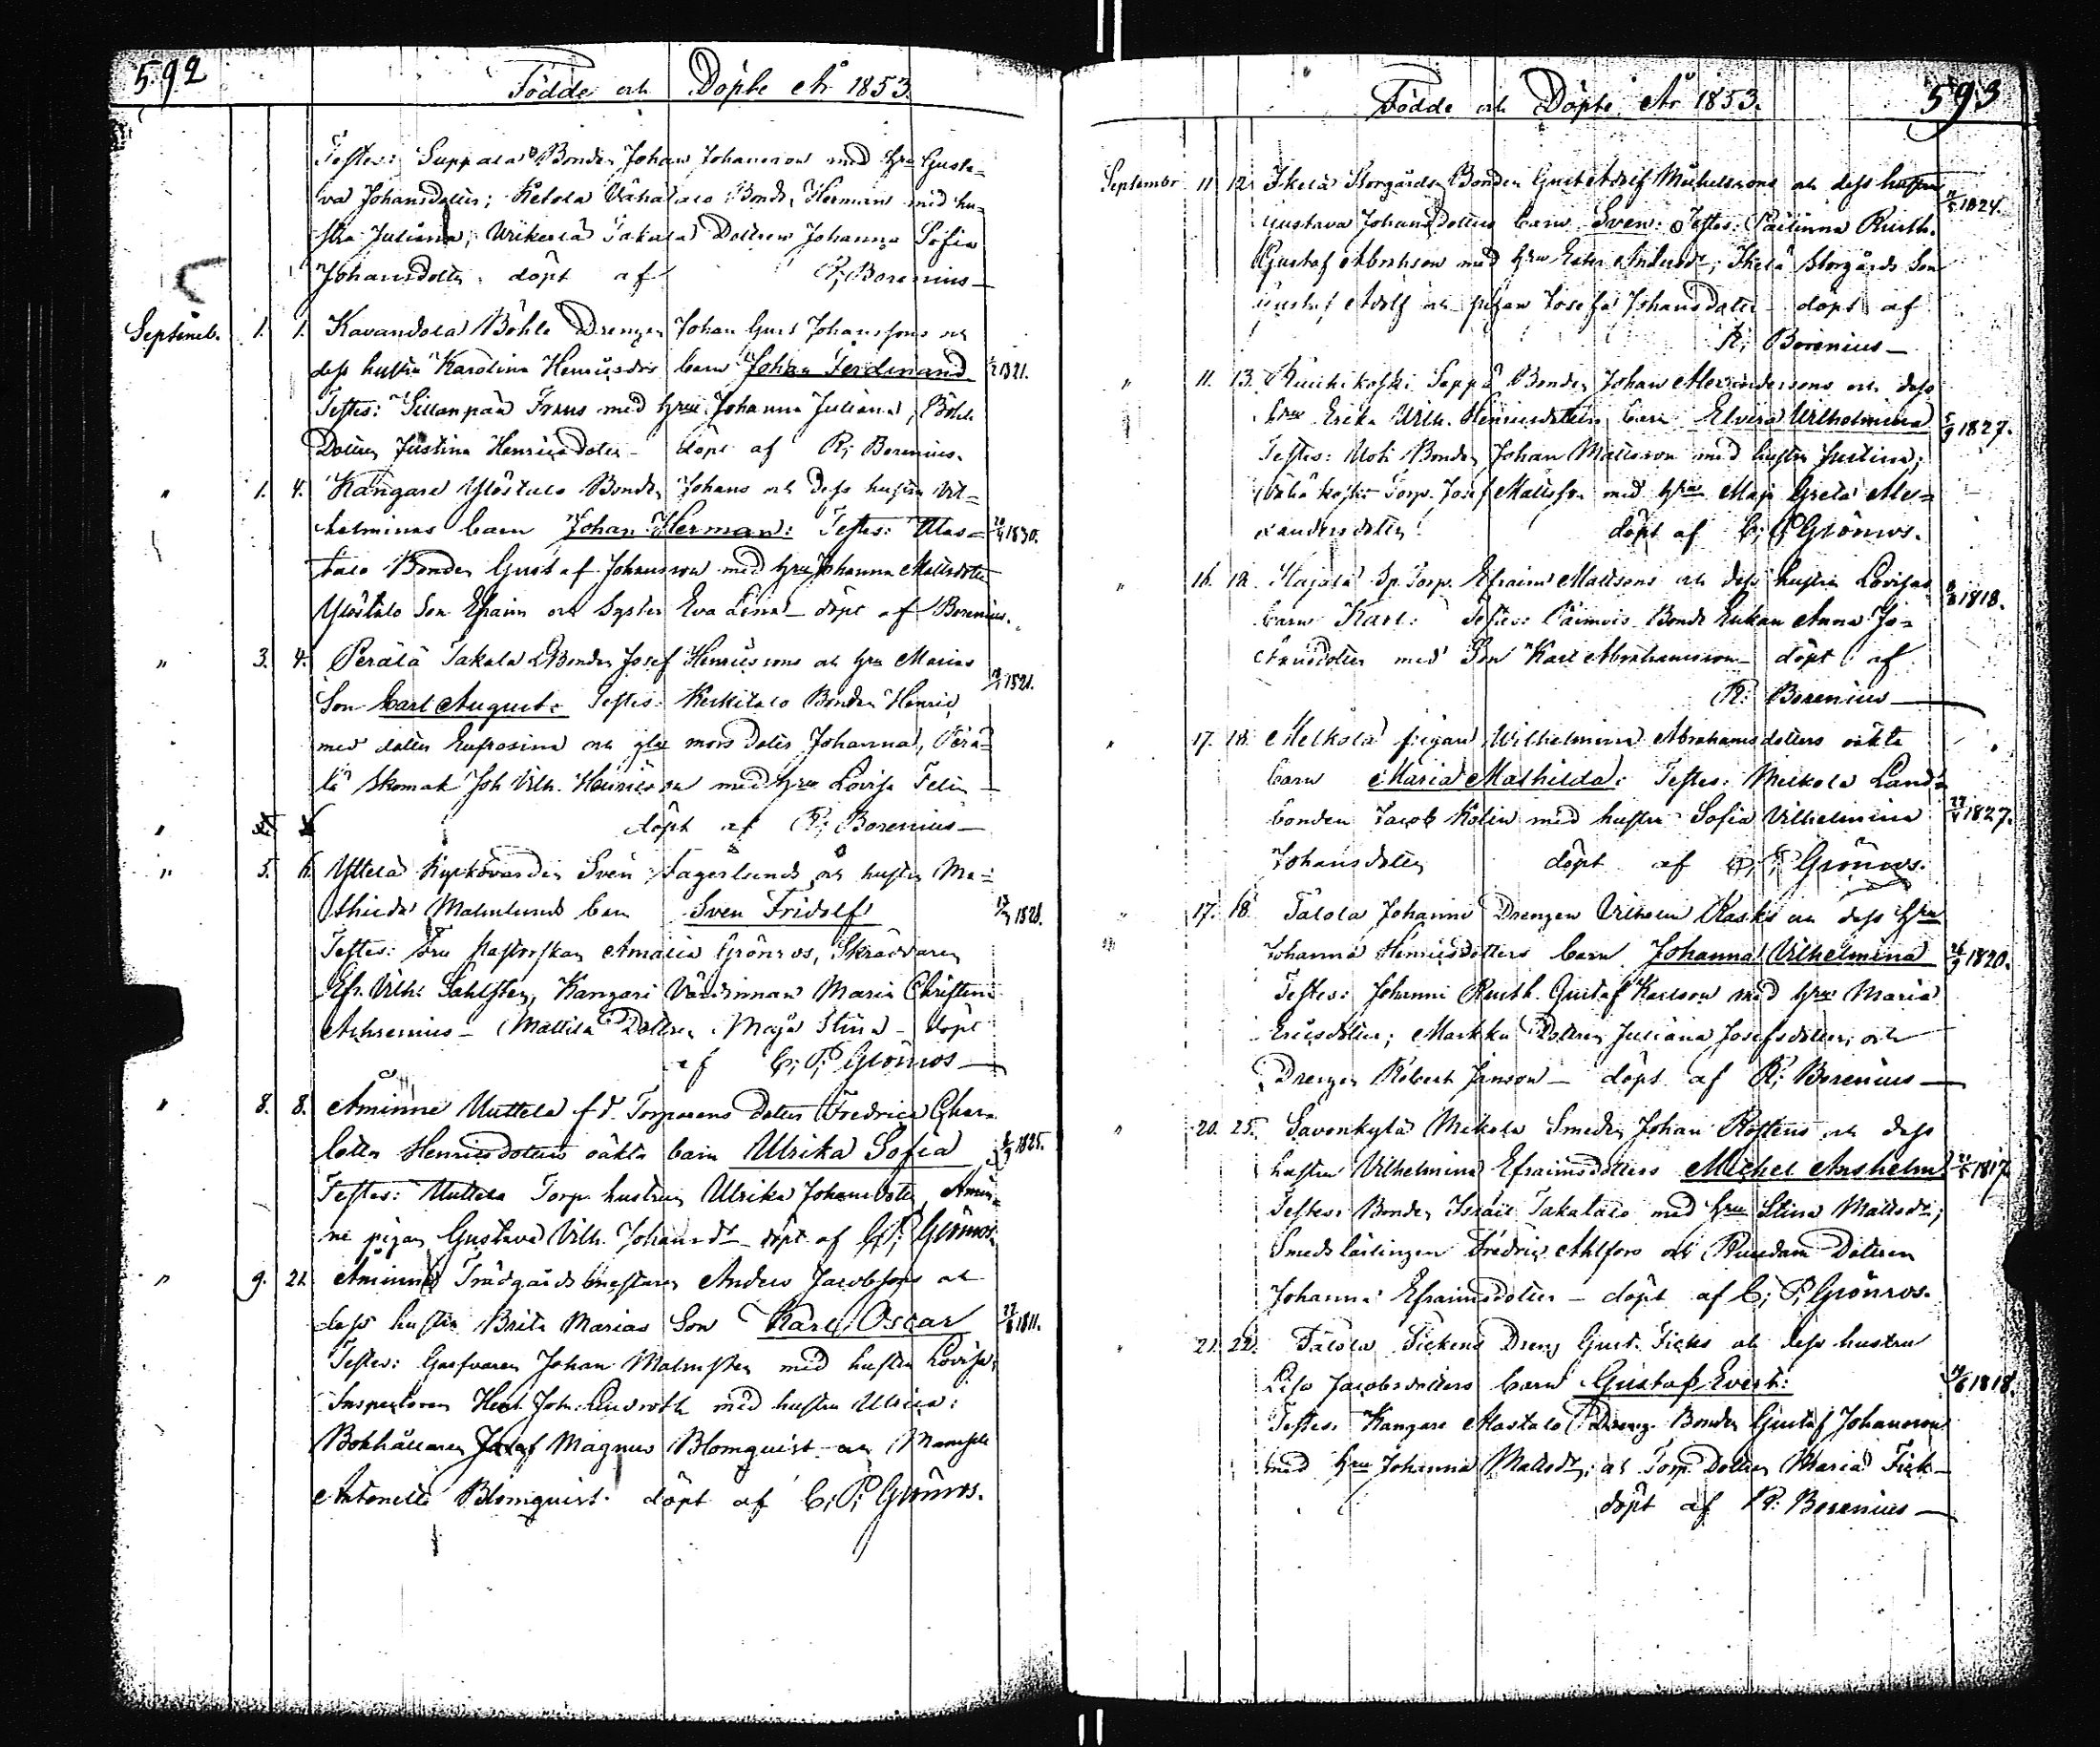 592
Födde och Döpte År 1853.
Testes: Suppala Bonden Johan Johansson med hru Gusta-
va Johansdotter; Ketola Vähätalo Bonden Herman med hu-
stru Juliana, Takala Dottren Johanna Sofia
Johansdotter döpt af R; Borenius
Septemb. 1. 1. Kavandola Böhle Drengen Johan Gust Johanssons och
dess hustru Karolina Henricsdrs barn Johan Ferdinand 1821.
Testes: Sillanpää Frans med hru Johanna Juliana, Böhle
Dottren Justina Henricsdotter döpt af R; Borenius.
" 1. 4. Kangare Ylöstalo Bonden Johans och dess hustru Vil-
helminas barn Johan Herman: Testes: Alas= 1830.
talo Bonden Gustaf Johansson med hru Johanna Mattsdotter
Ylöstalo Son Efraim och Syster Eva Lisa döpt af Borenius.
" 3. 4. Perälä Takala Bonden Josef Henricssons och hru Marias
Son Carl August: Testes: Keskitalo Bonden Henric 1821.
med dotter Eufrosina och mors doter Johanna, Perä-
lä Skomak Joh Vilh. Henricsson med hru Lovisa Felin
" döpt af R; Borenius
" 5. 6. Yttelä Kyrkovärden Sven Fagerlunds och hustru Ma-
thilda Malmlunds barn Sven Fridolf 1828.
Testes: Fru Pastorskan Amalia Grönros, Skräddaren
Efr. Vilh. Sahlsten, Kangari Värdinnan Maria Christina
Achrenius - Mattila Dottren Maja Stina - döpt
af C; P; Grönros
" 8. 8. Åminne Uuttela f.d. Torparens dotter Fredrica Char-
lotta Henricsdotters oäkta barn Ulrika Sofia 1825.
Testes: Uuttela Torp. hustrun Ulrika Johansdotter, Åmin-
ne pigan Gustava Vilh. Johansdr döpt af C; P; Grönros
" 9. 21. Åminne Trädgårdsmästaren Anders Jacobssons och
dess hustru Brita Marias Son Karl Oscar 1811.
Testes: Garfvaren Johan Malmsten med hustru Lovisa;
Inspectoren Joh. med hustru Ulrica:
Bokhållaren Josef Magnus Blomquist och Mamsell
Antonetta Blomquist. döpt af C; P; Grönros.
593
Födde och Döpte År 1853.
September 11. 12. Ihelä Storgårds Bonden Gust Adolf Michelssons och dess hustru
Gustava Johansdotters barn Sven: Testes: Rusth. 1824.
Gustaf Abrahsson med hru Ester Andersdr; Ihelä Storgårds Son
Gustaf Adolf och pigan Josefa Johansdotter döpt af
R; Borenius
" 11. 13. Sappa Bonden Johan Alexanderssons och dess
hru Erika Vilh. Henricsdotters barn Elvira Wilhelmina 1827.
Testes: Uoti Bonden Johan Mattsson med hustru Justina;
Torp. Josef Mattsson med hru Maja Greta Alex-
andersdotter döpt af C; P; Grönros.
" 16. 18. Hajala Sp. Torp. Efraim Mattssons och dess hustru Lovisas 1818.
barn Karl: Testes: Bonde Enkan Anna Jo-
hansdotter med Son Karl Abrahamsson döpt af
R: Borenius
" 17. 18. Melkola pigan Wilhelmina Abrahamsdotters oäkta
barn Maria Mathilda: Testes: Melkola Land-
bonden Jacob Kolin med hustru Sofia Vilhelmina 1827.
Johansdotter döpt af C; P; Grönros.
" 17. 18. Talola Johanni Drengen Vilhelm Kasks och dess hru
Johanna Henricsdotters barn Johanna Vilhelmina 1820.
Testes: Johanni Rusth. Gustaf Karlsson med hru Maria
Ericsdotter; Markku Dottren Juliana Josefsdotter och
Drengen Robert Jansson döpt af R; Borenius
" 20. 25. Savonkylä Mikola Smeden Johan Rostens och dess
hustru Vilhelmina Efraimsdotters Michel Anshelm 1817
Testes: Bonden Israel Takatalo med hru Stina Mattsdr;
Smedslärlingen Fredric Ahlfors och Dottren
Johanna Efraimsdotter - döpt af C; P; Grönros.
" 21. 22. Talola Fickens Dreng Gust. Ficks och dess hustru
Lisa Jacobsdotters barn Gustaf Evert: 1818.
Testes: Kangare Alastalo Bonden Gustaf Johansson
med hru Johanna Mattsdr; och Torp. Dottren Maria Fick
döpt af R: Borenius